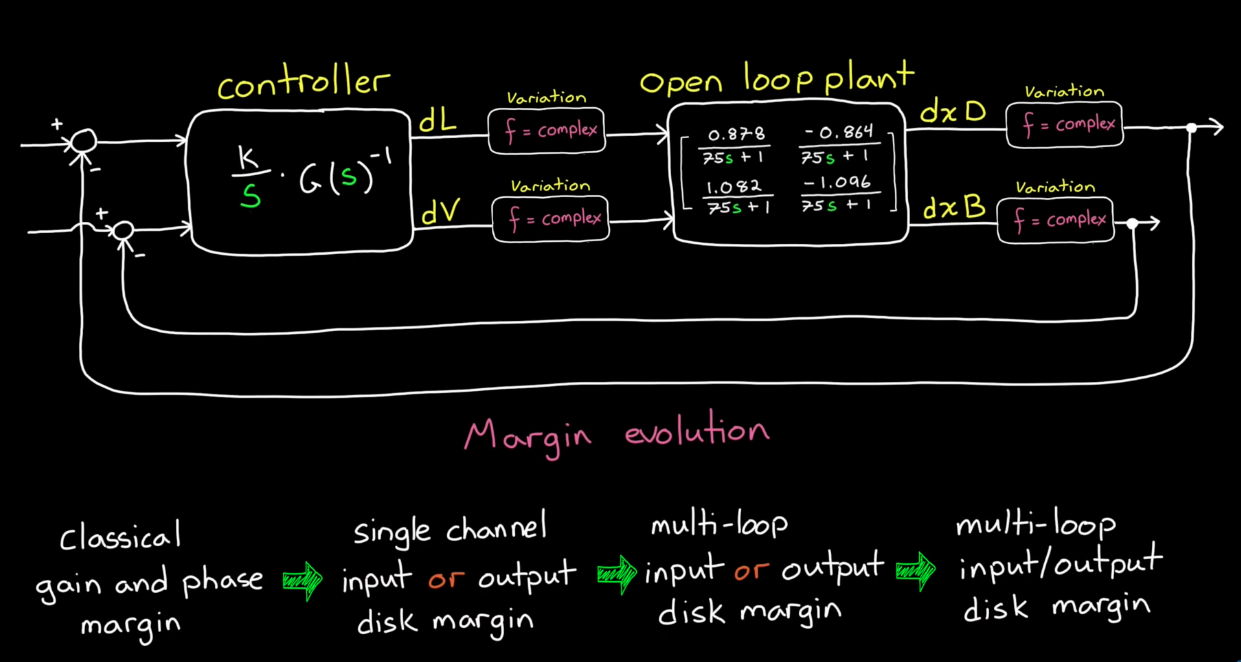 controller
open loop plant
+
-
K/s · G(s)⁻¹
+
-
dL
dV
Variation
f = complex
Variation
f = complex
0.878/75s + 1 -0.864/75s + 1
1.082/75s + 1 -1.096/75s + 1
dxD
dxB
Variation
f = complex
Variation
f = complex
Margin evolution
classical
gain and phase
margin
single channel
input or output
disk margin
multi-loop
input or output
disk margin
multi-loop
input/output
disk margin